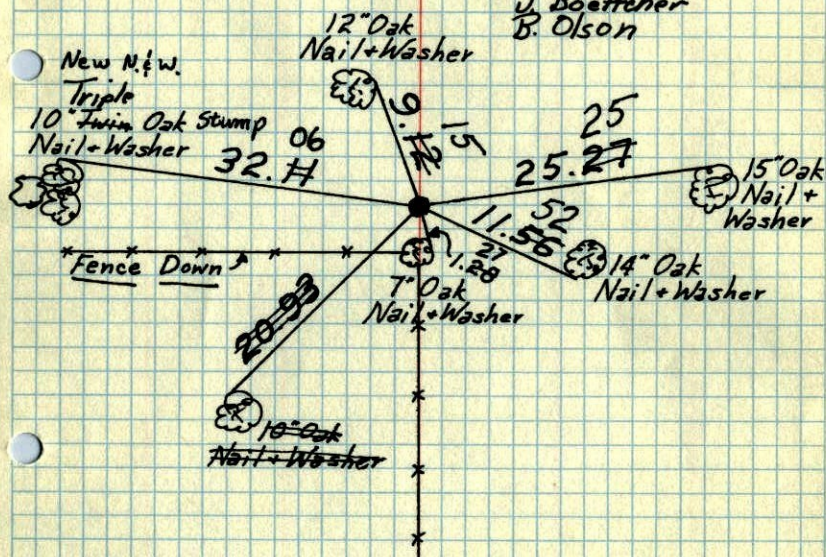 J. Boettcher
B. Olson
12" Oak
Nail + Washer
New N. & W.
Triple
10" Twin Oak Stump
Nail + Washer
06
32.11
15
9.12
25
25.27
15" Oak
Nail +
Washer
52
11.56
14" Oak
Nail + Washer
27
1.28
7" Oak
Nail + Washer
Fence Down
20.93
10" Oak
Nail + Washer